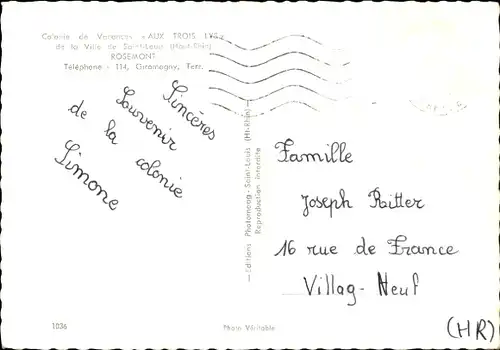 Colonie de Vacances « AUX TROIS LYS »
de la Ville de Saint-Louis (Haut-Rhin)
ROSEMONT
Téléphone - 114, Giromagny, Terr.
Sincères
Souvenir
de la colonie
Simone
Editions Photomag - Saint-Louis (Ht-Rhin)
Reproduction interdite
Famille
Joseph Ritter
16 rue de France
Villag-Neuf
(HR)
1036
Photo Véritable